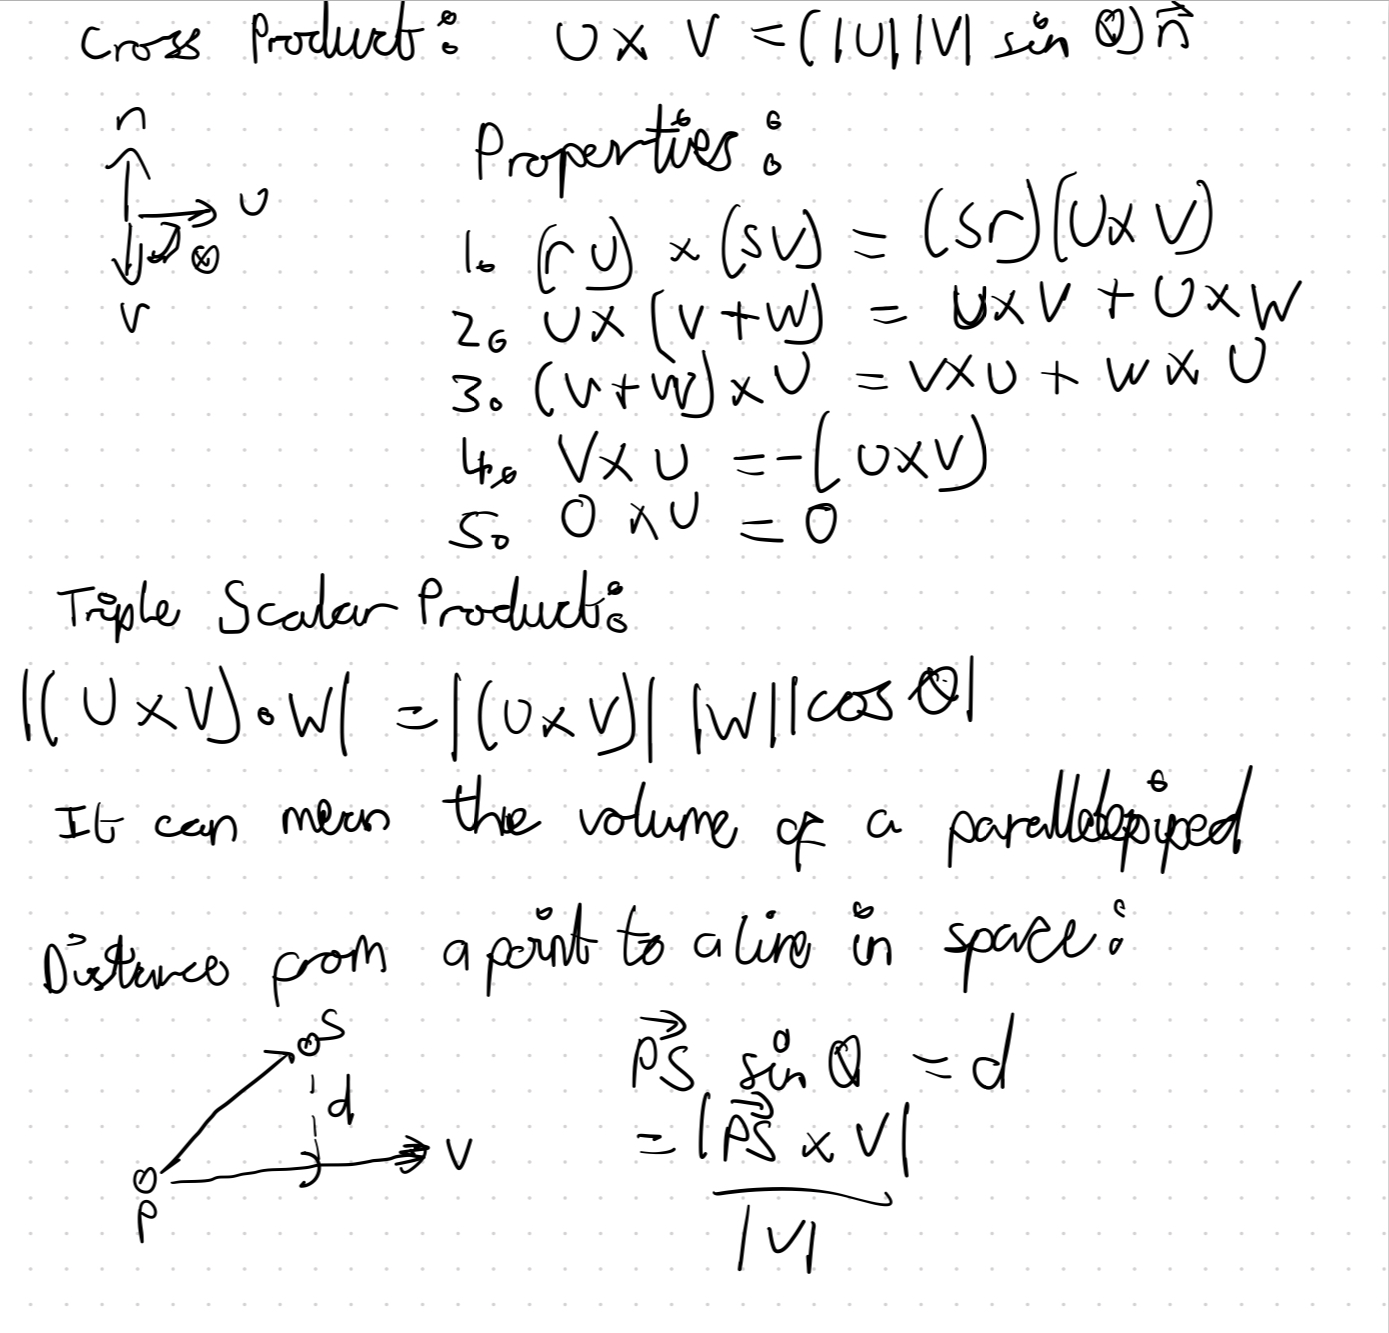 Cross Product: U × V = (|U||V| sin θ) n⃗
n
U
θ
V
Properties:
1. (rU) × (sV) = (sr)(U × V)
2. U × (V + W) = U × V + U × W
3. (V + W) × U = V × U + W × U
4. V × U = -(U × V)
5. 0 × U = 0
Triple Scalar Product:
|(U × V) • W| = |(U × V)| |W||cos θ|
It can mean the volume of a parallelepiped
Distance from a point to a line in space:
S
d
V
P
P⃗S⃗ sin θ = d
= |P⃗S⃗ × V|
|V|